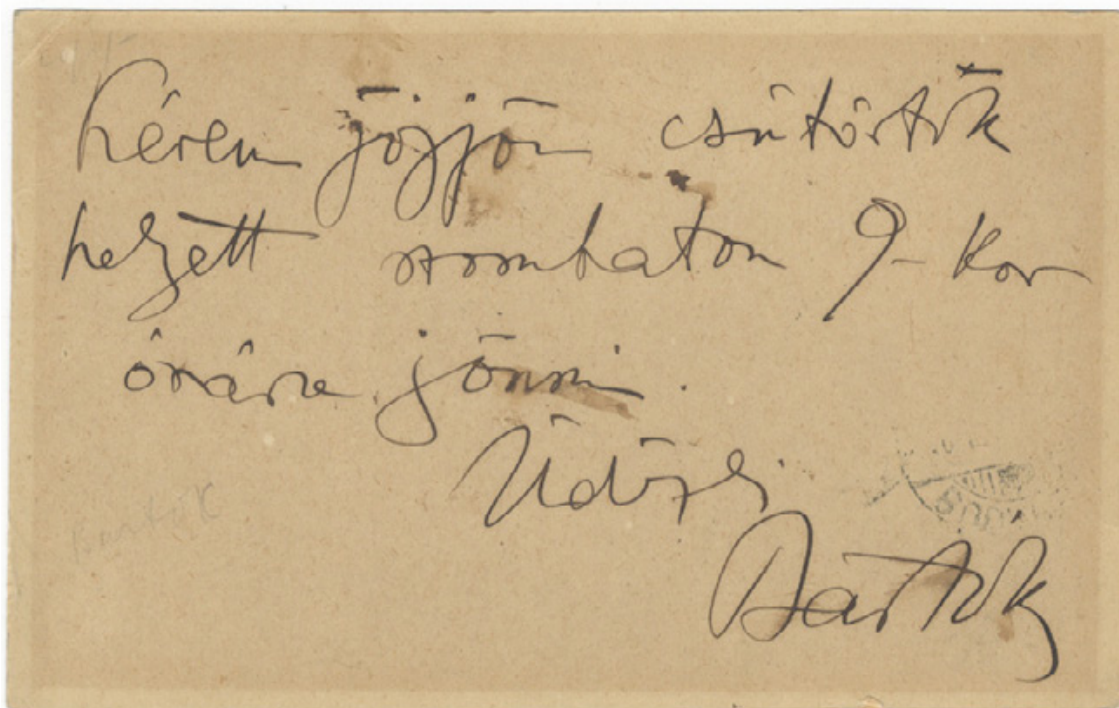 Kérem jőjjön csütörtök
helyett szombaton 9-kor
órára jönni.
Üdvözli
Bartók
Bartók